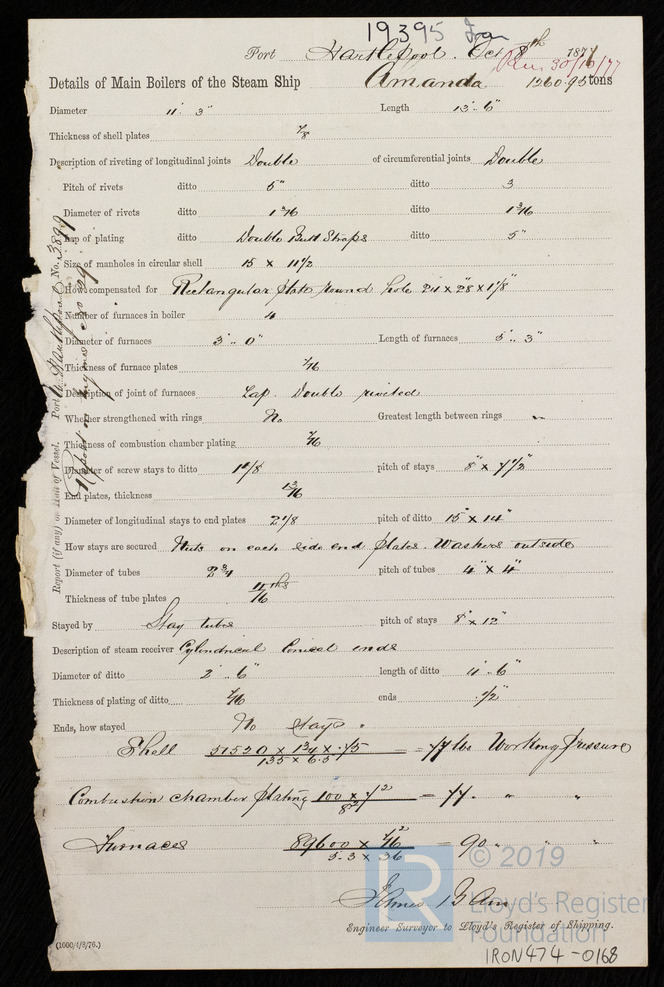 19395 Iron
Port Hartlepool. Oct 8th 1877
Rec 30/10/77
Details of Main Boilers of the Steam Ship Amanda 1260.95 tons
Diameter 11' 3" Length 13'.. 6"
Thickness of shell plates 7/8
Description of riveting of longitudinal joints Double of circumferential joints Double
Pitch of rivets ditto 5" ditto 3
Diameter of rivets ditto 1 3/16 ditto 1 3/16
Lap of plating ditto Double Butt Straps ditto 5"
Size of manholes in circular shell 15 x 11 1/2
How compensated for Rectangular plate round hole 24 x 28 x 1 1/8"
Number of furnaces in boiler 4
Diameter of furnaces 3'.. 0" Length of furnaces 5'.. 3"
Thickness of furnace plates 7/16
Description of joint of furnaces Lap. Double riveted
Whether strengthened with rings No Greatest length between rings "
Thickness of combustion chamber plating 7/16
Diameter of screw stays to ditto 1 1/8 pitch of stays 8" x 7 1/2"
End plates, thickness 13/16
Diameter of longitudinal stays to end plates 2 1/8 pitch of ditto 15" x 14"
How stays are secured Nuts on each side end plates. Washers outside
Diameter of tubes 2 3/4 pitch of tubes 4" x 4"
Thickness of tube plates 11/16 ths
Stayed by Stay tubes pitch of stays 8" x 12"
Description of steam receiver Cylindrical Conical ends
Diameter of ditto 2'.. 6" length of ditto 11'.. 6"
Thickness of plating of ditto 7/16 ends 1/2"
Ends, how stayed No stays.
Shell 51520 x 1 3/4 x .75 / 135 x 6.5 = 77 lbs Working Pressure
Combustion chamber plating 100 x 7² / 8² = 77. " "
Furnaces 89600 x 7/16² / 5.3 x 36 = 90 " " "
James
Engineer Surveyor to Lloyd's Register of Shipping.
(1000/4/3/76.)
Report (if any) on Hull of Vessel. Port Hartlepool No. 3899
Report on Engines No 29
© 2019
LR
Lloyd's Register
Foundation
IRON474-0168